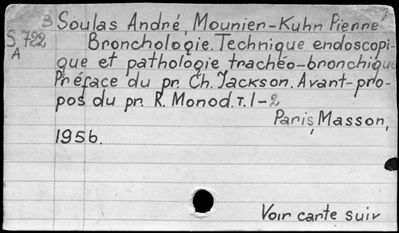 B Soulas André, Mounier-Kuhn Pierre
S 722 Bronchologie. Technique endoscopi-
A que et pathologie trachéo-bronchique
Préface du pr. Ch. Jackson. Avant-pro-
pos du pr. R. Monod. T. 1-2
Paris, Masson,
1956.
Voir carte suiv